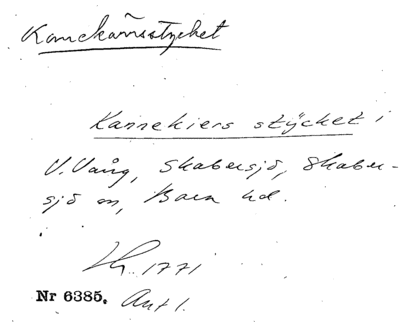 Kanekärrsstycket
Kannekiers stÿcket i
V. Vång, Skabersjö, Skaber-
sjö sn, Bara hd.
1771
Nr 6385. Avt 1.